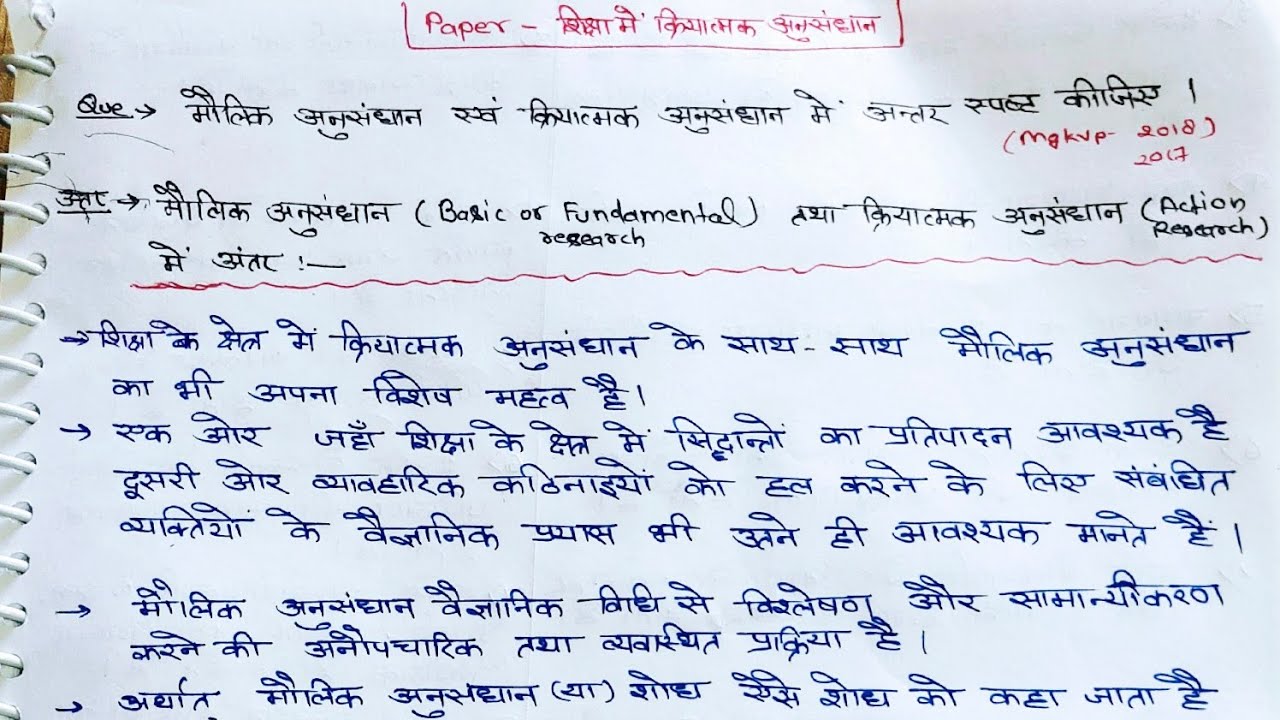 Paper - शिक्षा में क्रियात्मक अनुसंधान
Que → मौलिक अनुसंधान एवं क्रियात्मक अनुसंधान में अन्तर स्पष्ट कीजिए ।
(Mgkvp- 2018)
2017
उत्तर → मौलिक अनुसंधान (Basic or Fundamental) तथा क्रियात्मक अनुसंधान (Action
research Research)
में अंतर :—
→ शिक्षा के क्षेत्र में क्रियात्मक अनुसंधान के साथ - साथ मौलिक अनुसंधान
का भी अपना विशेष महत्व है।
→ एक ओर जहाँ शिक्षा के क्षेत्र में सिद्धान्तों का प्रतिपादन आवश्यक है
दूसरी ओर व्यावहारिक कठिनाइयों को हल करने के लिए संबंधित
व्यक्तियों के वैज्ञानिक प्रयास भी उतने ही आवश्यक माने है ।
→ मौलिक अनुसंधान वैज्ञानिक विधि से विश्लेषण और सामान्यीकरण
करने की अनौपचारिक तथा व्यवस्थित प्रक्रिया है ।
→ अर्थात् मौलिक अनुसंधान (या) शोध ऐसे शोध को कहा जाता है